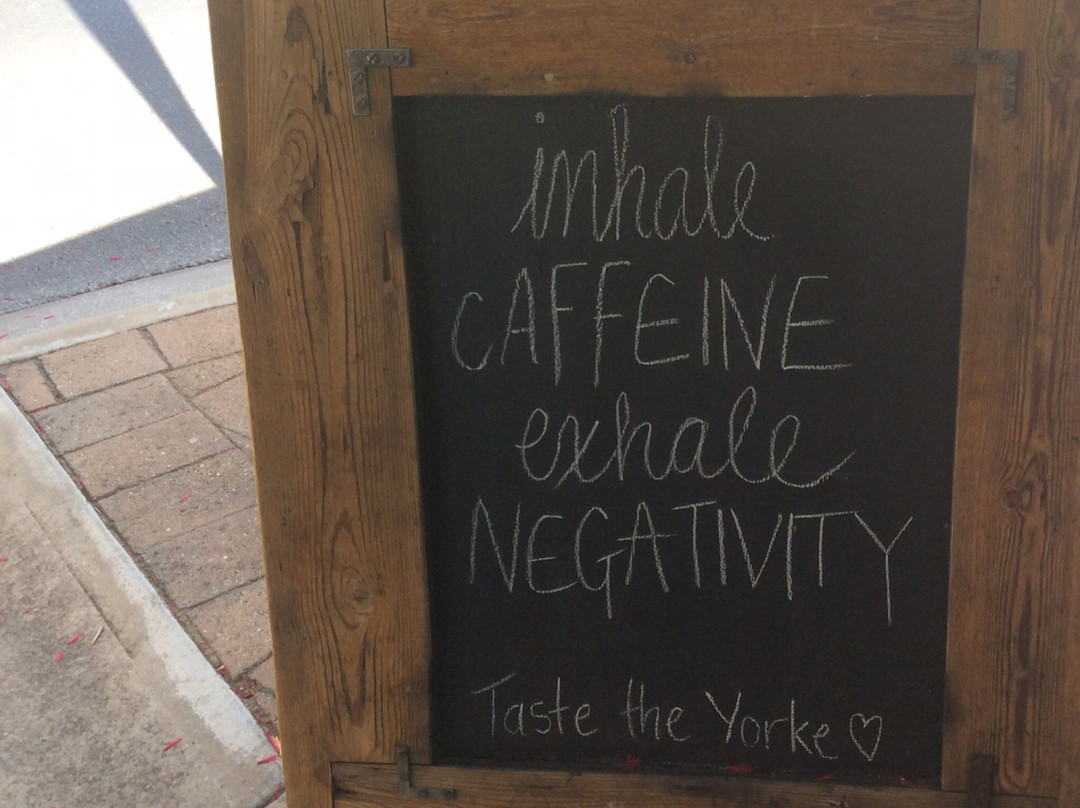 inhale
CAFFEINE
exhale
NEGATIVITY
Taste the Yorke ♡